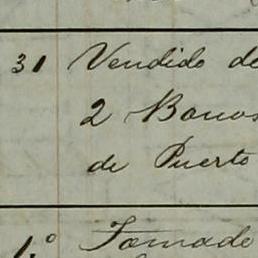 31 Vendido de
2 Bonos
de Puerto
1.º Tomado